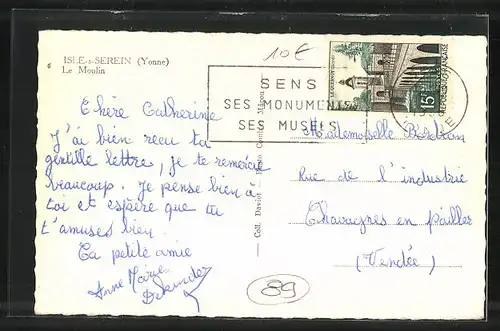 ISLE-s-SEREIN (Yonne)
Le Moulin
10€
SENS
SES MONUMENTS
SES MUSÉES
15F
Chère Catherine
J'ai bien reçu ta
gentille lettre, je te remercie
beaucoup. Je pense bien à
toi et espère que tu
t'amuses bien
Ta petite amie
Anne Marie
Coll. Daviot - Photo Combier Mâcon
Mademoiselle
Rue de l'industrie
Chavagnes en pailler
(Vendée)
89